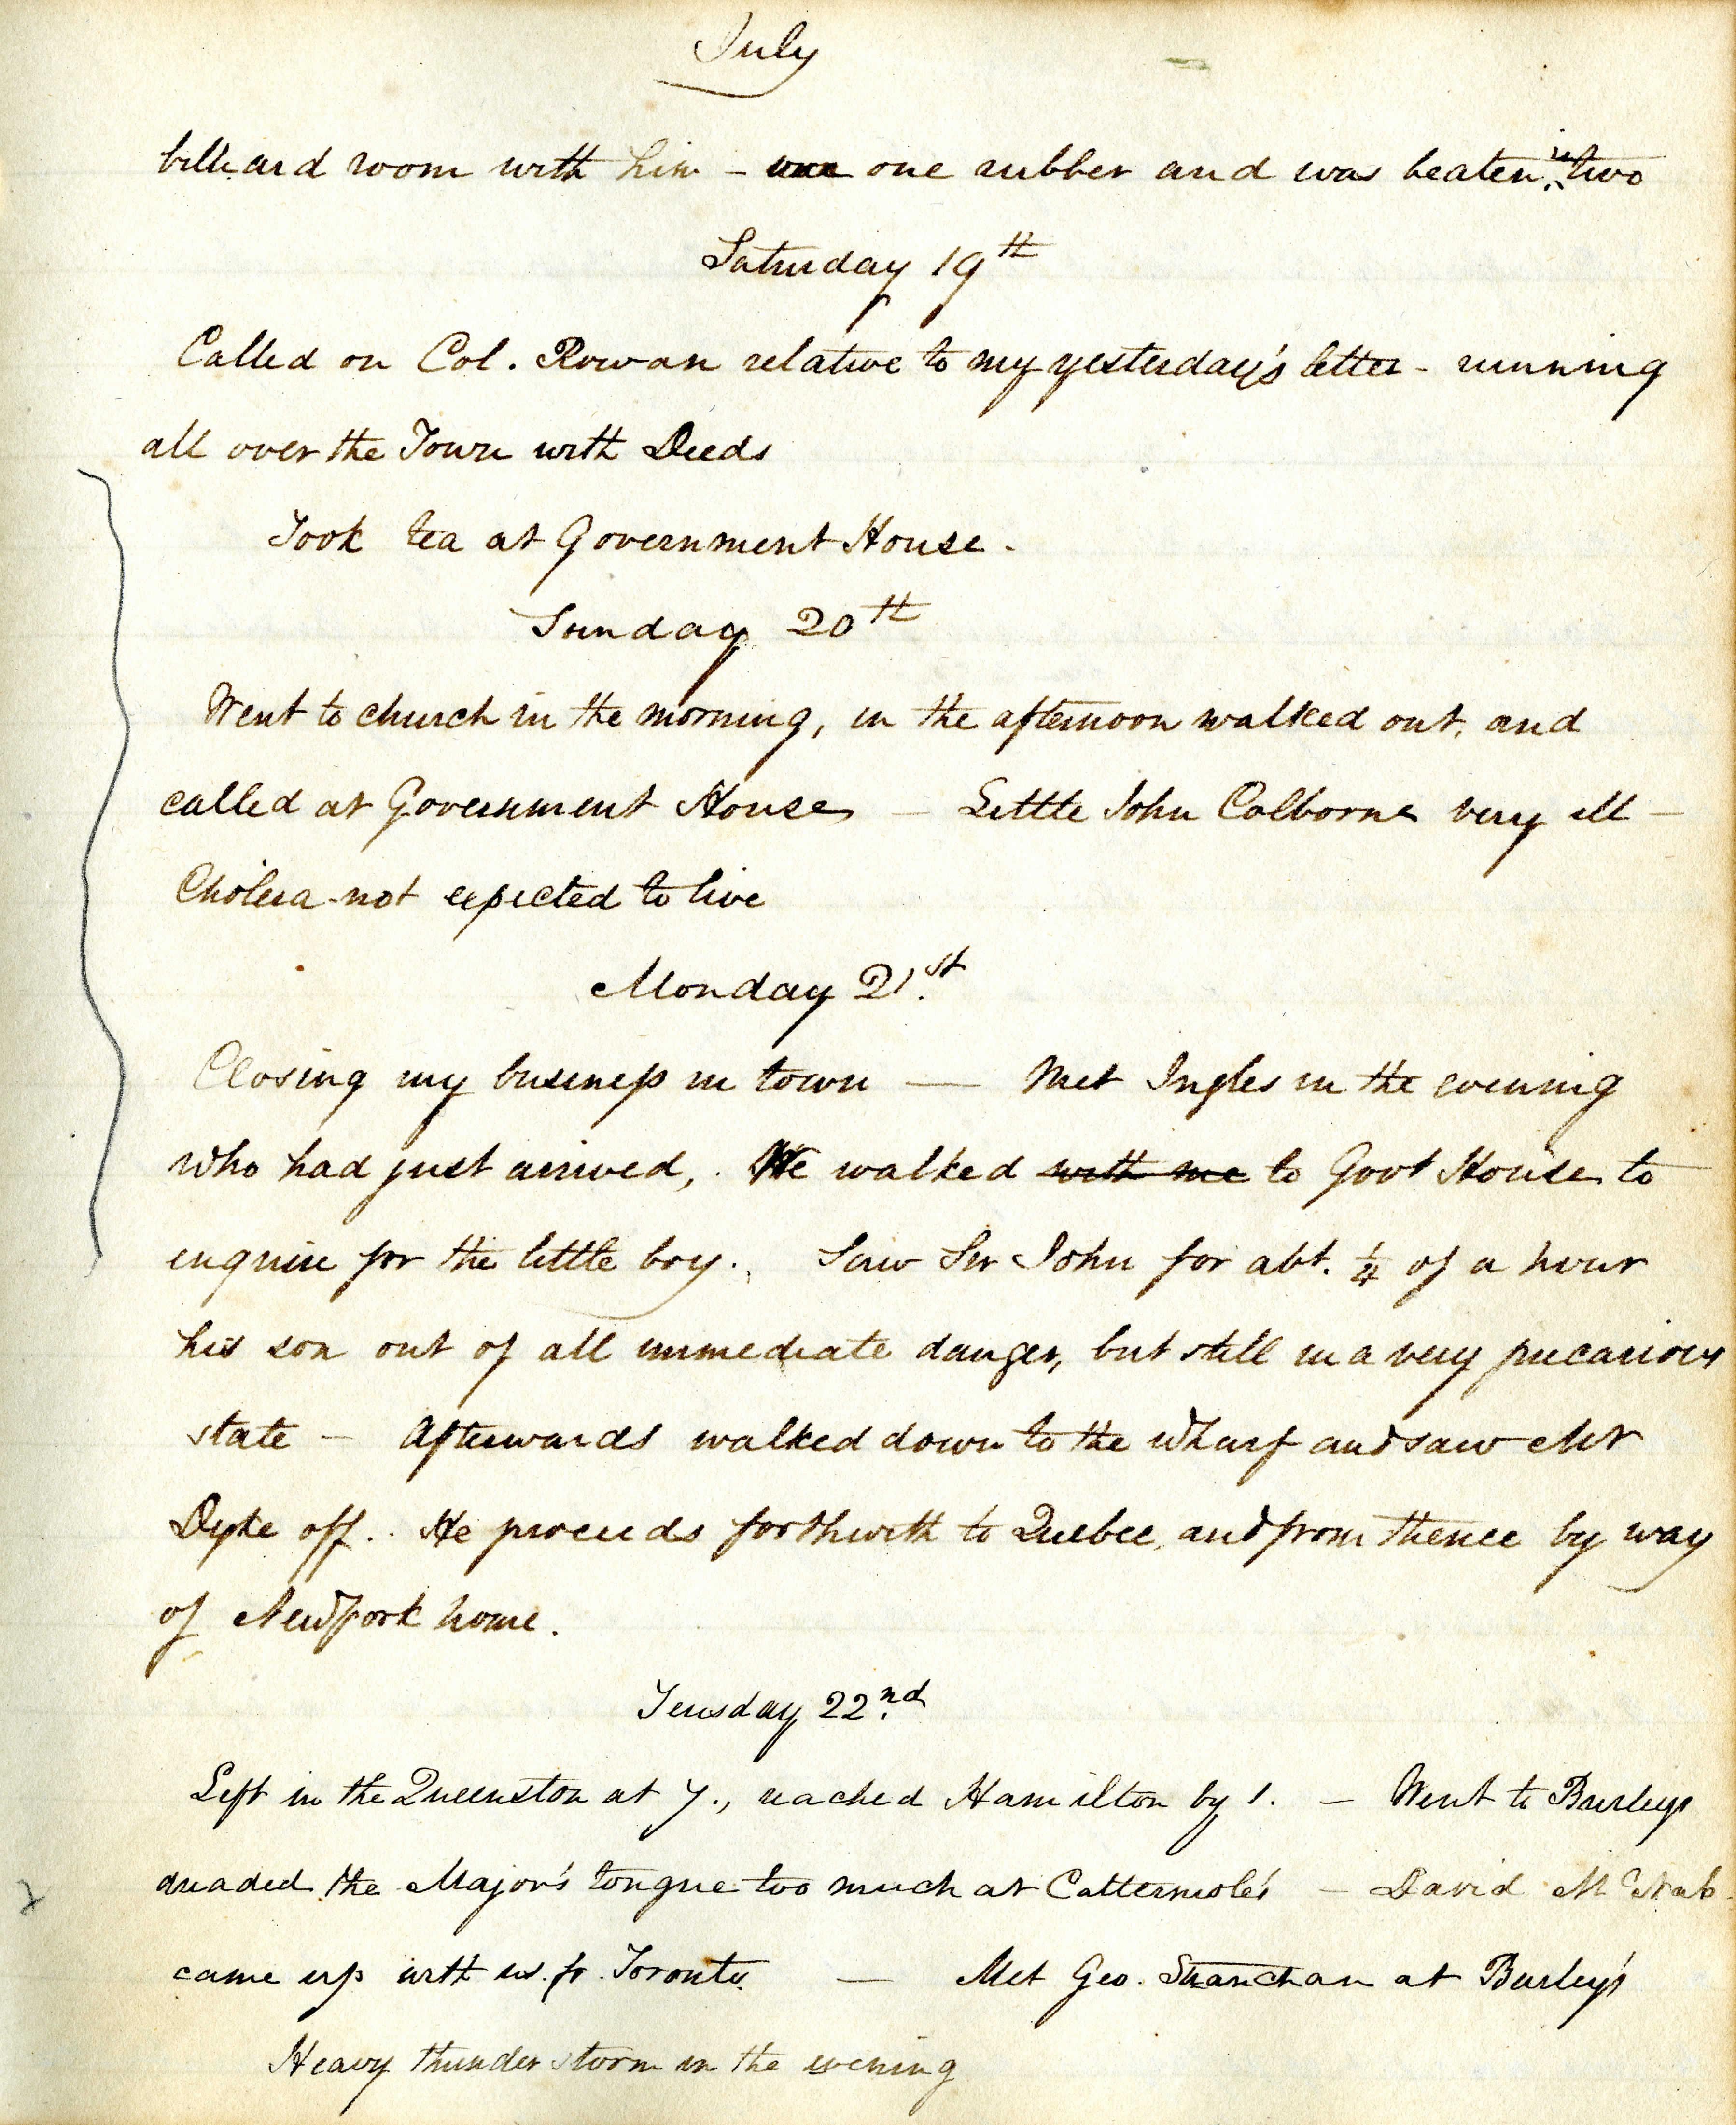 July
billiard room with him - won one rubber and was beaten in two
Saturday 19th
Called on Col. Rowan relative to my yesterday's letter - running
all over the Town with Deeds
Took tea at Government House -
Sunday 20th
Went to church in the morning, in the afternoon walked out, and
called at Government House - Little John Colborne very ill -
Cholera - not expected to live
Monday 21st
Closing my business in town — Met Ingles in the evening
who had just arrived, We walked with me to Govt House to
enquire for the little boy. Saw Sir John for abt. 1/4 of a hour
his son out of all immediate danger, but still in a very precarious
state - Afterwards walked down to the Wharf and saw Mr
Dyke off. He proceeds forthwith to Quebec, and from thence by way
of New York home.
Teusday 22nd
Left in the Queenston at 7., reached Hamilton by 1. - Went to Burleys
dreaded the Major's tongue too much at Cattermole's - David McNab
came up with us fr. Toronto — Met Geo. Stranchan at Burley's
Heavy thunder storm in the evening